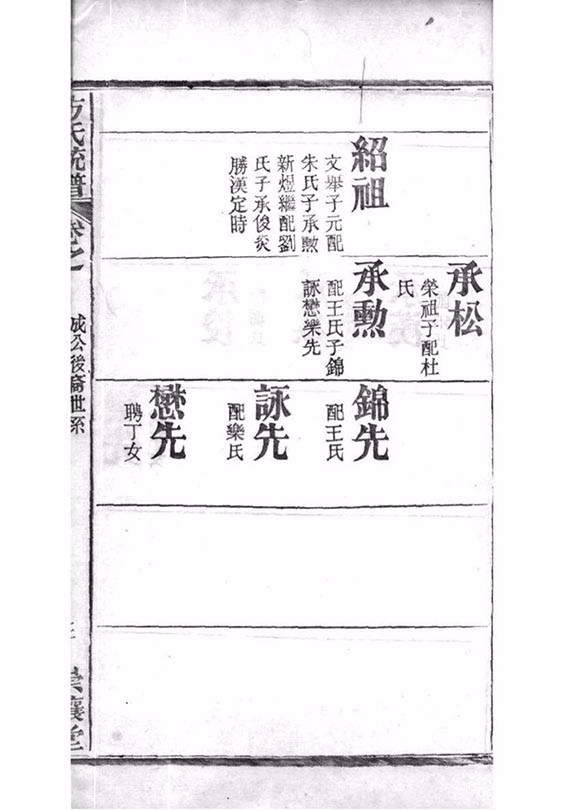 紹祖
文舉子元配
朱氏子承勲
新煜繼配劉
氏子承俊炎
勝漢定時
承松
榮祖子配杜
氏
承勲
配王氏子錦
詠懋樂先
錦先
配王氏
詠先
配樂氏
懋先
聘丁女
方氏統譜
卷之
成公後裔世系